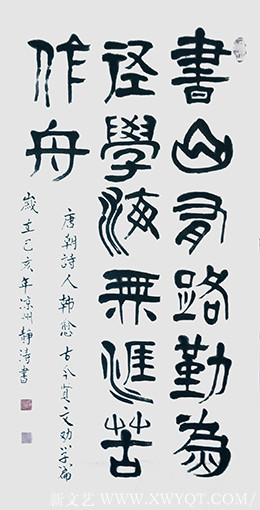 書山有路勤為
径學海無涯苦
作舟
唐朝詩人韩愈古今賢文劝学篇
歲在己亥年凉州靜涛書
新文艺 / WWW.XWYQT.COM/